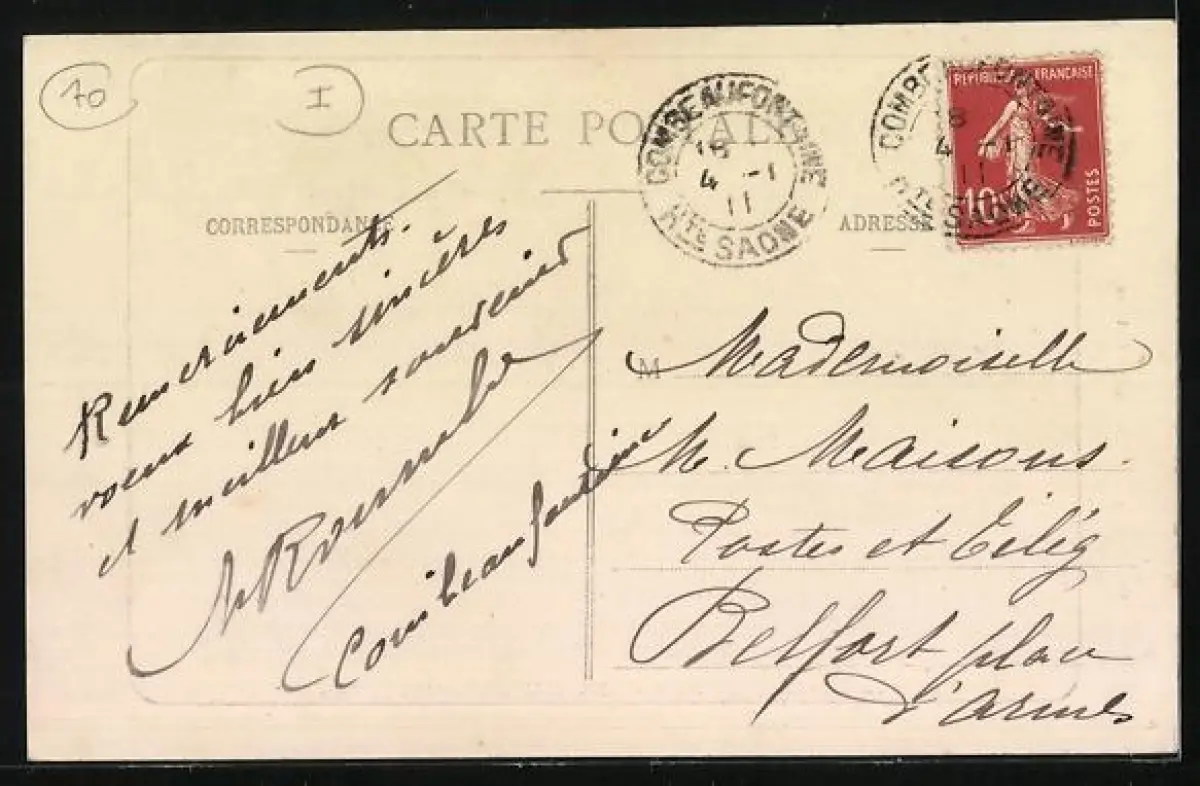 70
I
CARTE POSTALE
CORRESPONDANCE
ADRESSE
COMBEAUFONTAINE
18
4 -1
11
HTE SAONE
COMBEAUFONTAINE
18
4 -1
11
HTE SAONE
REPUBLIQUE FRANÇAISE
10
POSTES
Remerciements.
voeux bien sincères
et meilleur souvenir
Combeaufontaine
M
Mademoiselle
M. Maisons.
Postes et Télég
Belfort place
d'armes